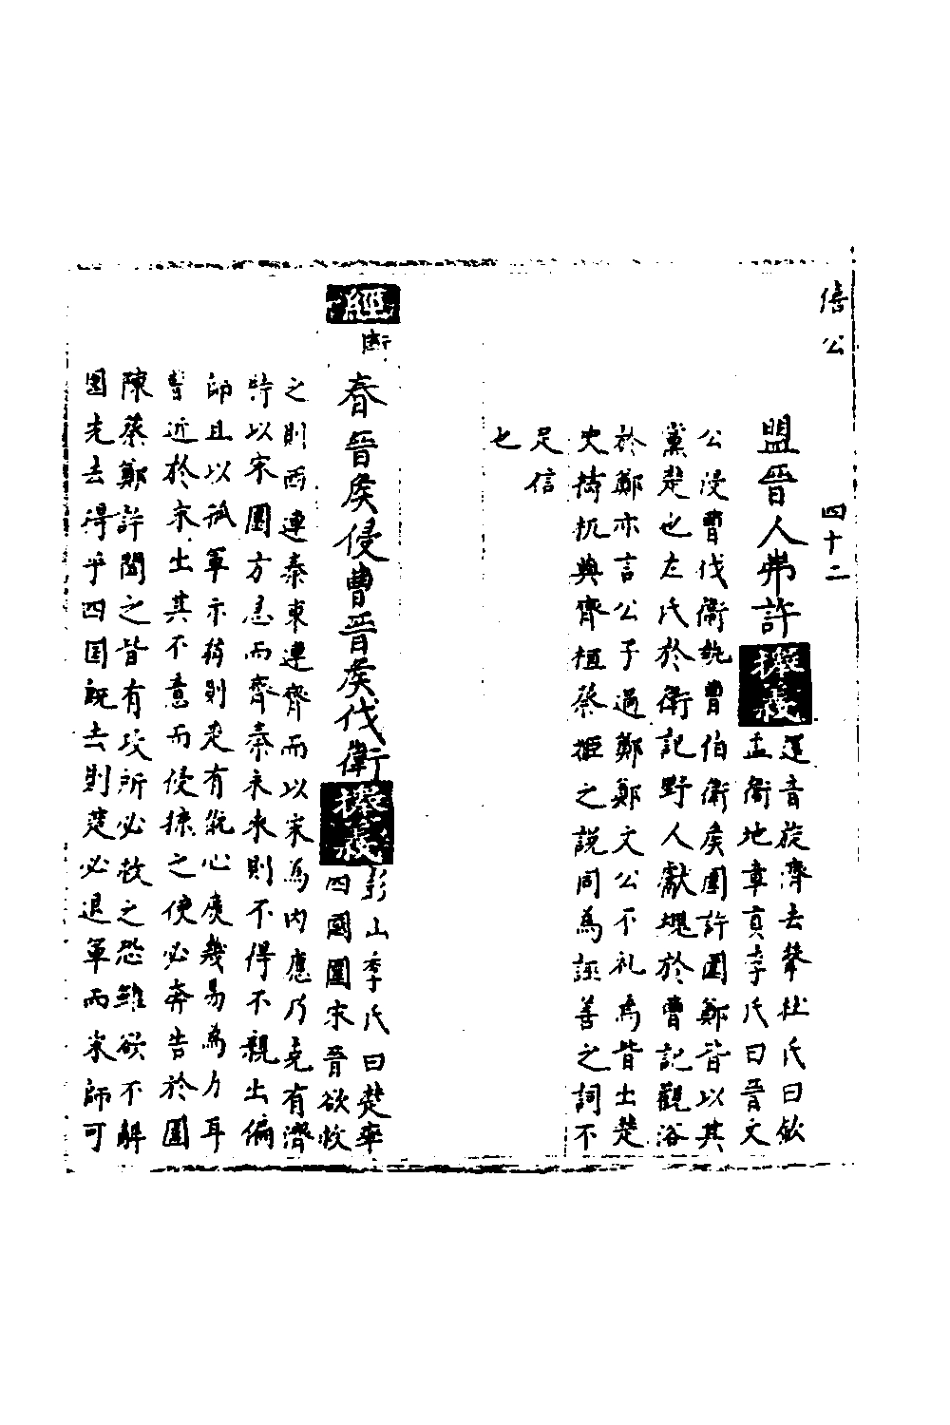 僖公 四十二
盟晉人弗許
輯義
還音旋濟去聲杜氏曰斂
盂衞地韋貢李氏曰晉文
公浸曹伐衞執曹伯衞矦圍許圍鄭皆以其
黨楚也左氏於衛記野人獻塊於曹記觀浴
於鄭亦言公子過鄭鄭文公不礼焉皆出楚
史檮杌與齊桓蔡姬之説同為誣善之詞不
足信
也
經
断
春晉矦侵曹晉矦伐衛
輯義
彭山季氏曰楚率
四國圍宋晉欲救
之則西連秦東連齊而以宋為内應乃克有濟
特以宋圍方急而齊秦未來則不得不親出偏
師且以孤軍示弱則更有疑心庶幾易為力耳
曹近於宋出其不意而侵掠之使必奔告於圍
陳蔡鄭許聞之皆有攻所必救之恐雖欲不解
圍先去得乎四国既去則楚必退軍而宋師可